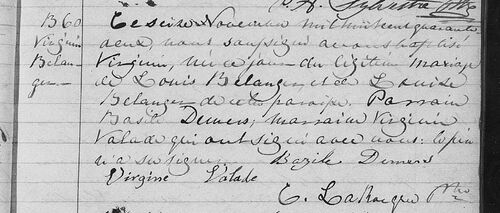 B 60
Virginie
Belan-
ger.-
Le seize Novembre mil huit cent quarante
deux, nous soussigné avons baptisé
Virginie, née ce jour du légitime mariage
de Louis Belanger et de Louise
Belanger de cette paroisse. Parrain
Basile Demers; marraine Virginie
Valade qui ont signé avec nous: le père
n'a su signer. Bazile Demers
Virgine Valade
C. LaRocque Ptre